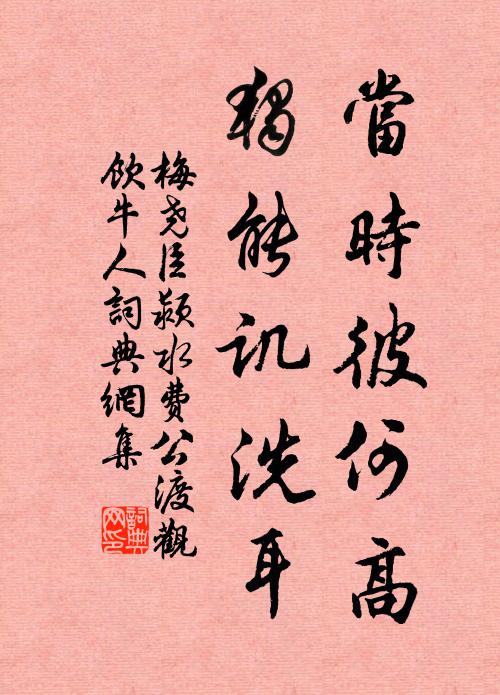 當時彼何高
獨能譏洗耳
梅堯臣潁水費公渡觀
飲牛人詞典網集
詞典网印